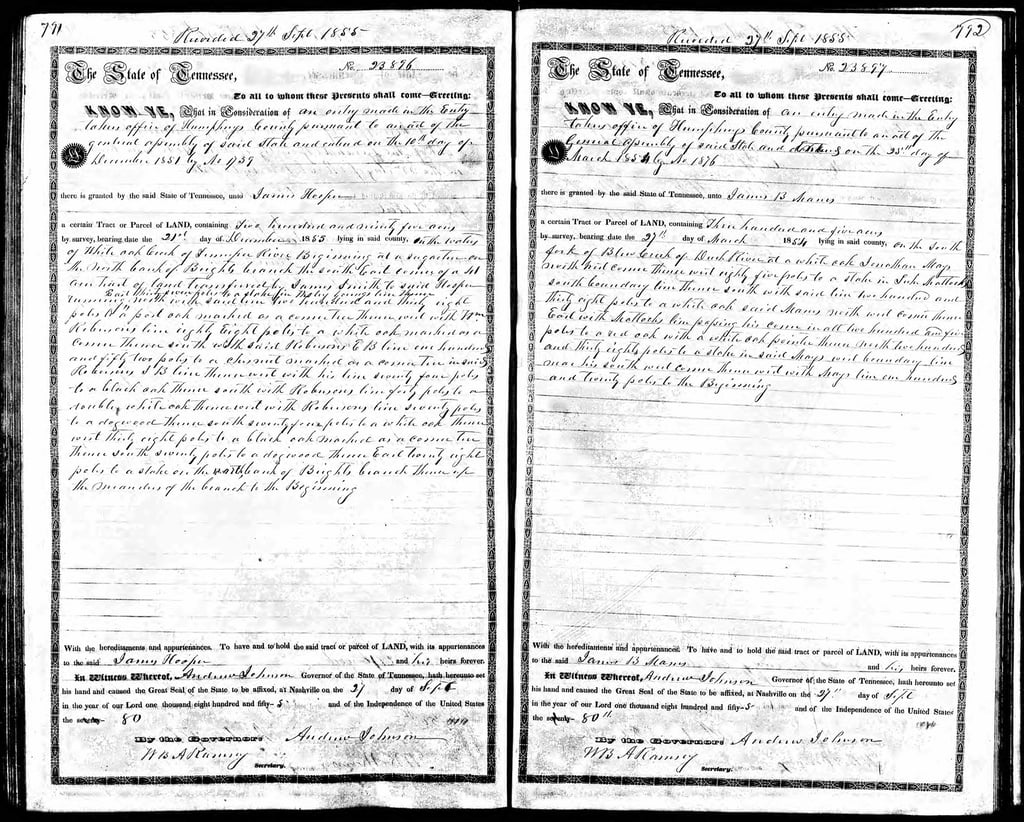 791
Recorded 27th Sept 1855
The State of Tennessee,
No. 23896
To all to whom these Presents shall come—Greeting:
KNOW YE, That in Consideration of an entry made in the Entry
takers office of Humphreys County pursuant to an act of the
general assembly of said State and entered on the 10th day of
December 1851 by No 1739
there is granted by the said State of Tennessee, unto James Hooper
a certain Tract or Parcel of LAND, containing Two hundred and ninety five acres
by survey, bearing date the 21st day of December 1853 lying in said county, on the waters
of White oak Creek of Tennessee River Beginning at a sugartree on
the north bank of Brights branch the south East corner of a 41
acre tract of land transferred by James Smith to said Hooper
running north with said line two hundred and thirty eight
East thirty poles to a stake in line thence
poles to a post oak marked as a corner tree thence west with Wm
Robinsons line eighty Eight poles to a white oak marked as a
corner thence south with said Robinsons E B line one hundred
and fifty two poles to a chesnut marked as a corner tree in said
Robinsons S B line thence west with his line seventy four poles
to a black oak thence south with Robinsons line fifty poles to a
double white oak thence west with Robinsons line seventy poles
to a dogwood thence south seventy four poles to a white oak thence
west thirty eight poles to a black oak marked as a corner tree
thence south seventy poles to a dogwood thence East twenty eight
poles to a stake on the north bank of Brights branch thence up
the meanders of the branch to the Beginning
With the hereditaments and appurtenances. To have and to hold the said tract or parcel of LAND, with its appurtenances
to the said James Hooper and his heirs forever.
In Witness Whereof, Andrew Johnson Governor of the State of Tennessee, hath hereunto set
his hand and caused the Great Seal of the State to be affixed, at Nashville on the 27 day of Sept
in the year of our Lord one thousand eight hundred and fifty-5 and of the Independence of the United States
the seventy- 80
By the Governor: Andrew Johnson
W B A Ramsey
Secretary.
792
Recorded 27th Sept 1855
The State of Tennessee,
No. 23897
To all to whom these Presents shall come—Greeting:
KNOW YE, That in Consideration of an entry made in the Entry
takers office of Humphreys County pursuant to an act of the
General Assembly of said State and entered on the 25th day of
March 1854 by No 1876
there is granted by the said State of Tennessee, unto James B Manes
a certain Tract or Parcel of LAND, containing Three hundred and five acres
by survey, bearing date the 27th day of March 1854 lying in said county, on the South
fork of Blue Creek of Duck River at a white oak Jonathan Mays
north west corner thence west eighty five poles to a stake in John Matlocks
south boundary line thence south with said line two hundred and
thirty eight poles to a white oak said Manes north west corner thence
East with Matlocks line passing his corner in all two hundred and five
poles to a red oak with a white oak pointer thence north two hundred
and thirty eight poles to a stake in said Mays west boundary line
near his south west corner thence west with Mays line one hundred
and twenty poles to the Beginning
With the hereditaments and appurtenances. To have and to hold the said tract or parcel of LAND, with its appurtenances
to the said James B Manes and his heirs forever.
In Witness Whereof, Andrew Johnson Governor of the State of Tennessee, hath hereunto set
his hand and caused the Great Seal of the State to be affixed, at Nashville on the 27th day of Sept
in the year of our Lord one thousand eight hundred and fifty-5 and of the Independence of the United States
the seventy- 80th
By the Governor: Andrew Johnson
W B A Ramsey
Secretary.